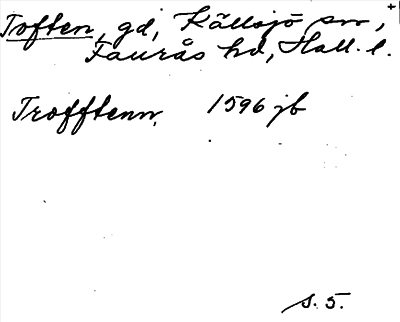 Toften, gd, Källsjö sn,
Faurås hd, Hall. l.
Trofftenn. 1596 jb
s. 5.